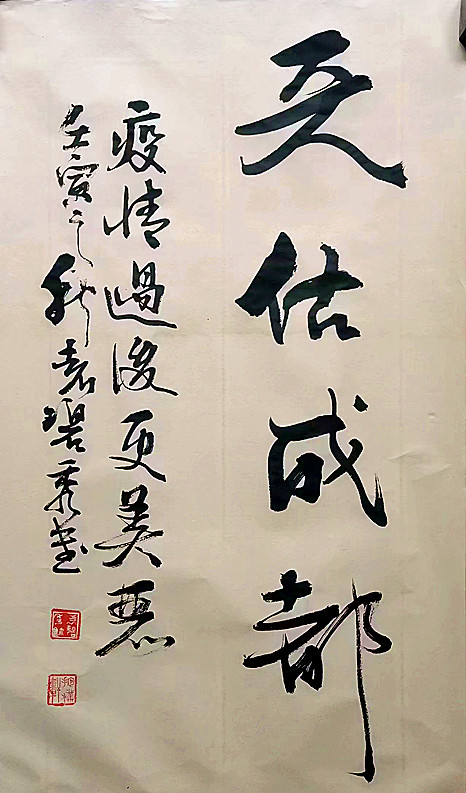 天佑成都
疫情過後更美麗
壬寅之秋袁碧秀書